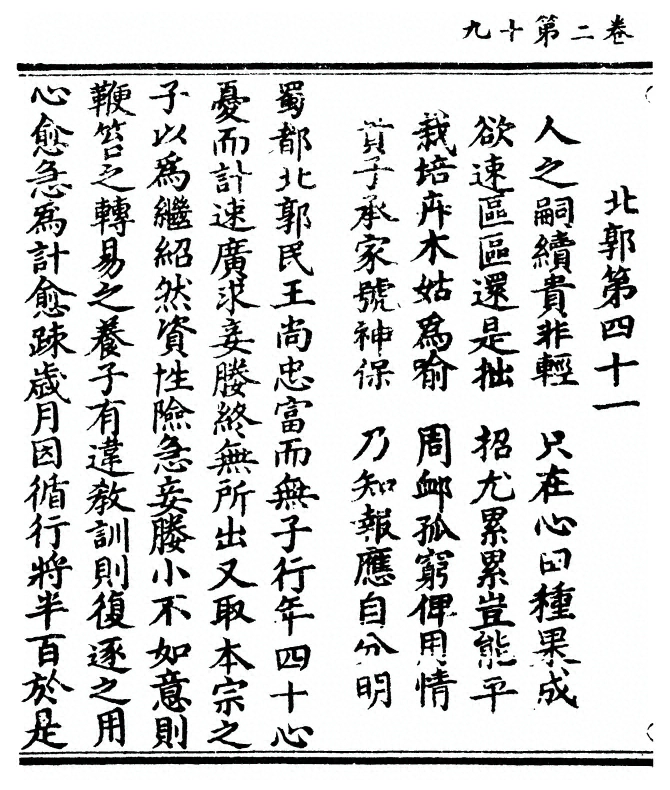 卷二第十九
北郭第四十一
人之嗣續貴非輕　只在心田種果成
欲速區區還是拙　招尤累累豈能平
栽培卉木姑爲喻　周卹孤窮俾用情
貴子承家號神保　乃知報應自分明
蜀都北郭民王尚忠富而無子行年四十心
憂而計速廣求妾媵終無所出又取本宗之
子以爲繼紹然資性險急妾媵小不如意則
鞭笞之轉易之養子有違教訓則復逐之用
心愈急爲計愈踈歲月因循行將半百於是